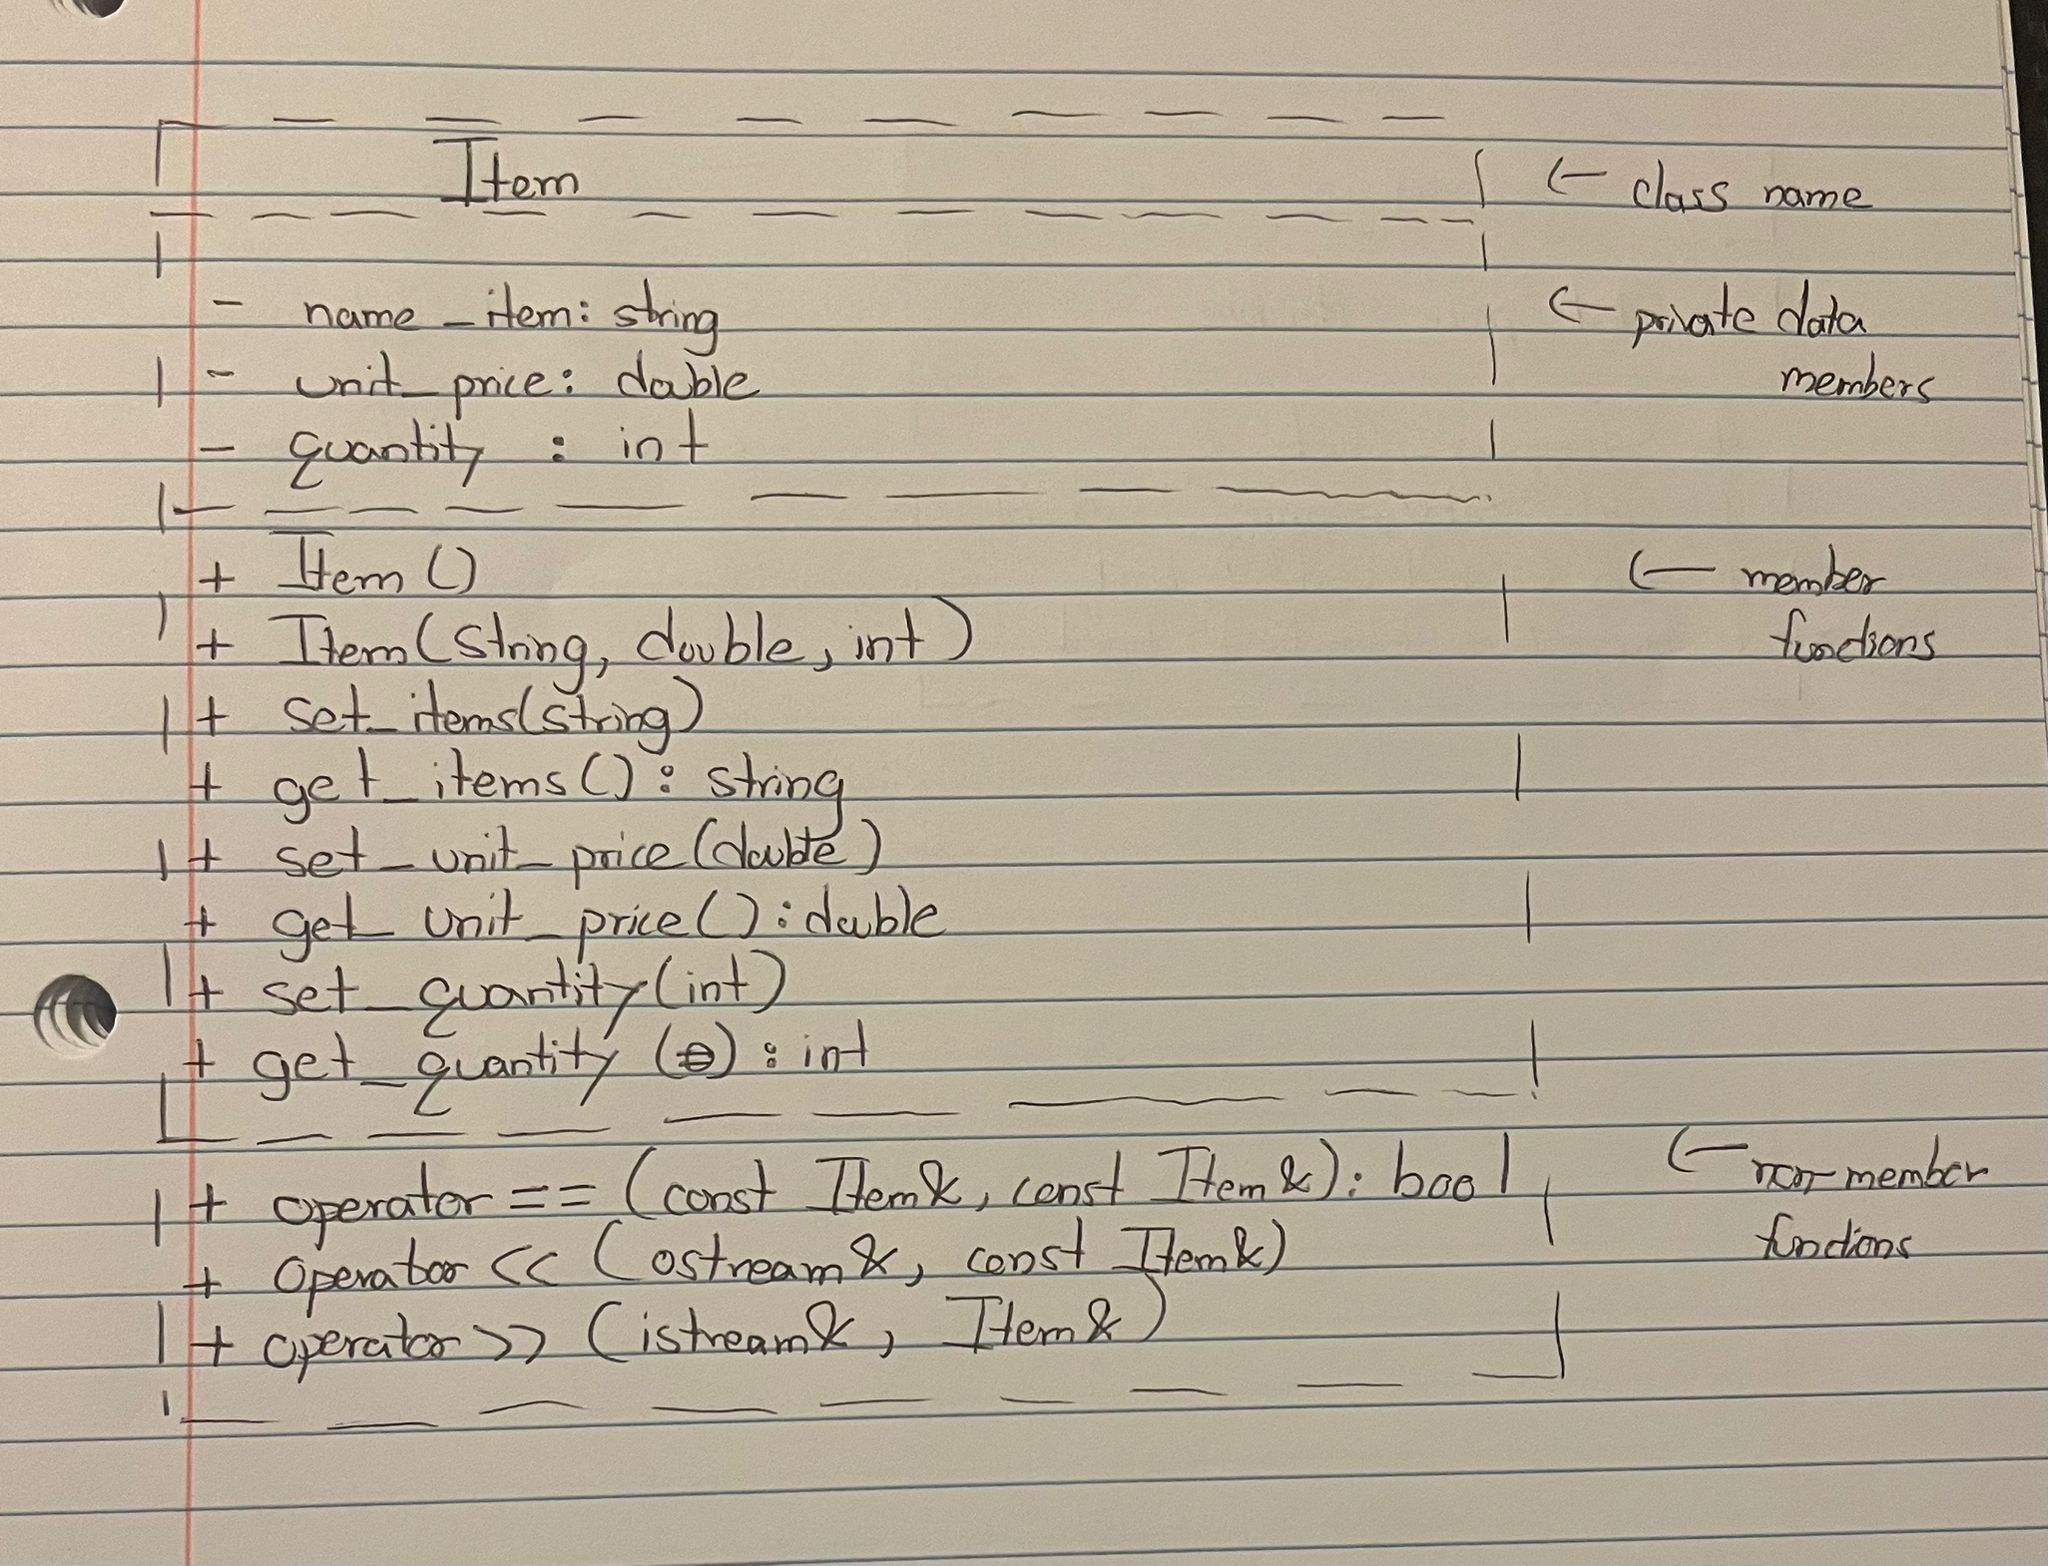 Item ← class name
- name_item: string ← private data
- unit_price: double members
- quantity : int
+ Item() ← member
+ Item(string, double, int) functions
+ set_items(string)
+ get_items(): string
+ set_unit_price(double)
+ get_unit_price(): double
+ set_quantity(int)
+ get_quantity (): int
+ operator == (const Item&, const Item&): bool ← non-member
+ operator << (ostream&, const Item&) functions
+ operator >> (istream&, Item&)